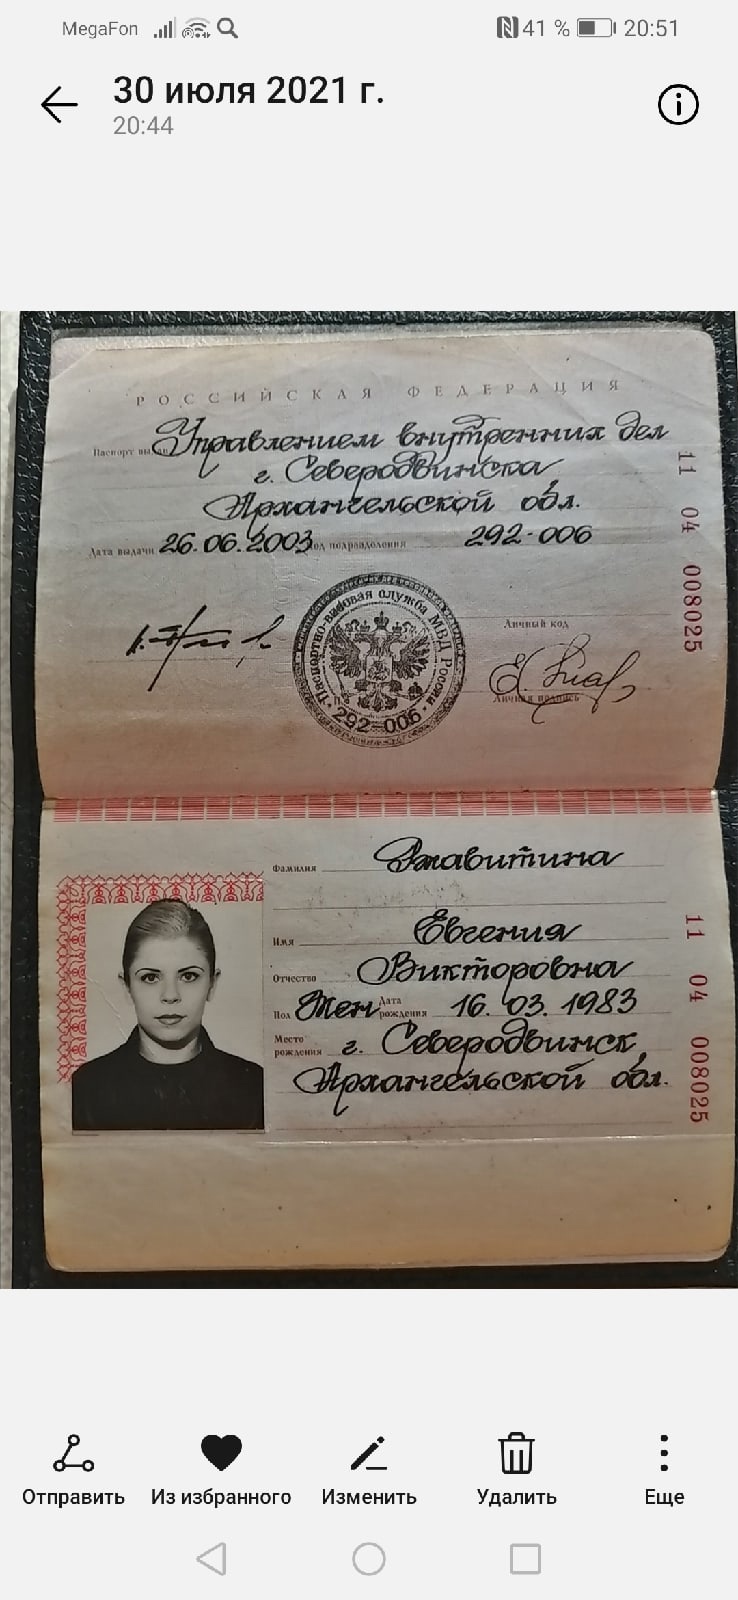 MegaFon 41 % 20:51
30 июля 2021 г.
20:44
РОССИЙСКАЯ ФЕДЕРАЦИЯ
Паспорт выдан Управлением внутренних дел
г. Северодвинска
Архангельской обл.
Дата выдачи 26.06.2003 Код подразделения 292-006
Личный код
Личная подпись
Паспортно-визовая служба МВД России
292-006
11 04 008025
Фамилия
Имя Евгения
Отчество Викторовна
Пол Жен Дата рождения 16.03.1983
Место рождения г. Северодвинск
Архангельской обл.
11 04 008025
Отправить Из избранного Изменить Удалить Еще